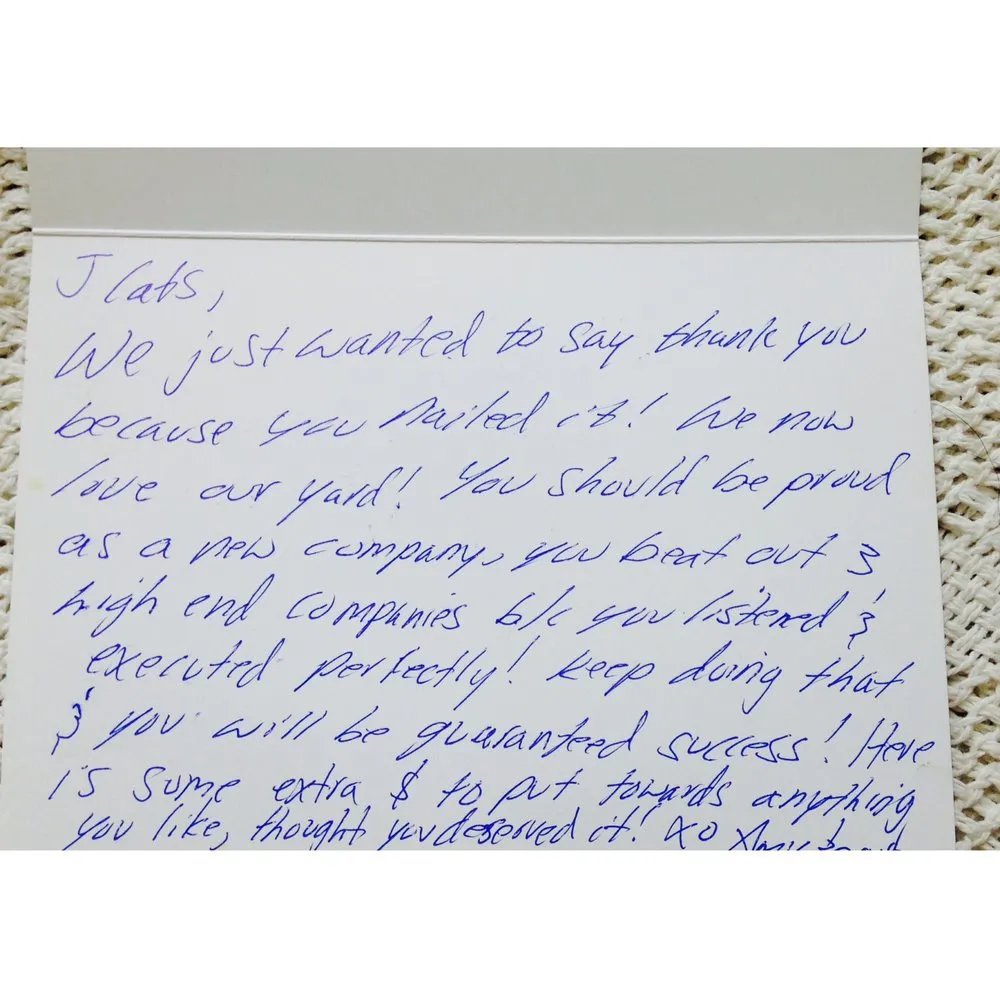 J Cats,
We just wanted to say thank you
because you nailed it! We now
love our yard! You should be proud
as a new company, you beat out 3
high end companies b/c you listened &
executed perfectly! Keep doing that
& you will be guaranteed success! Here
is some extra $ to put towards anything
you like, thought you deserved it! XO